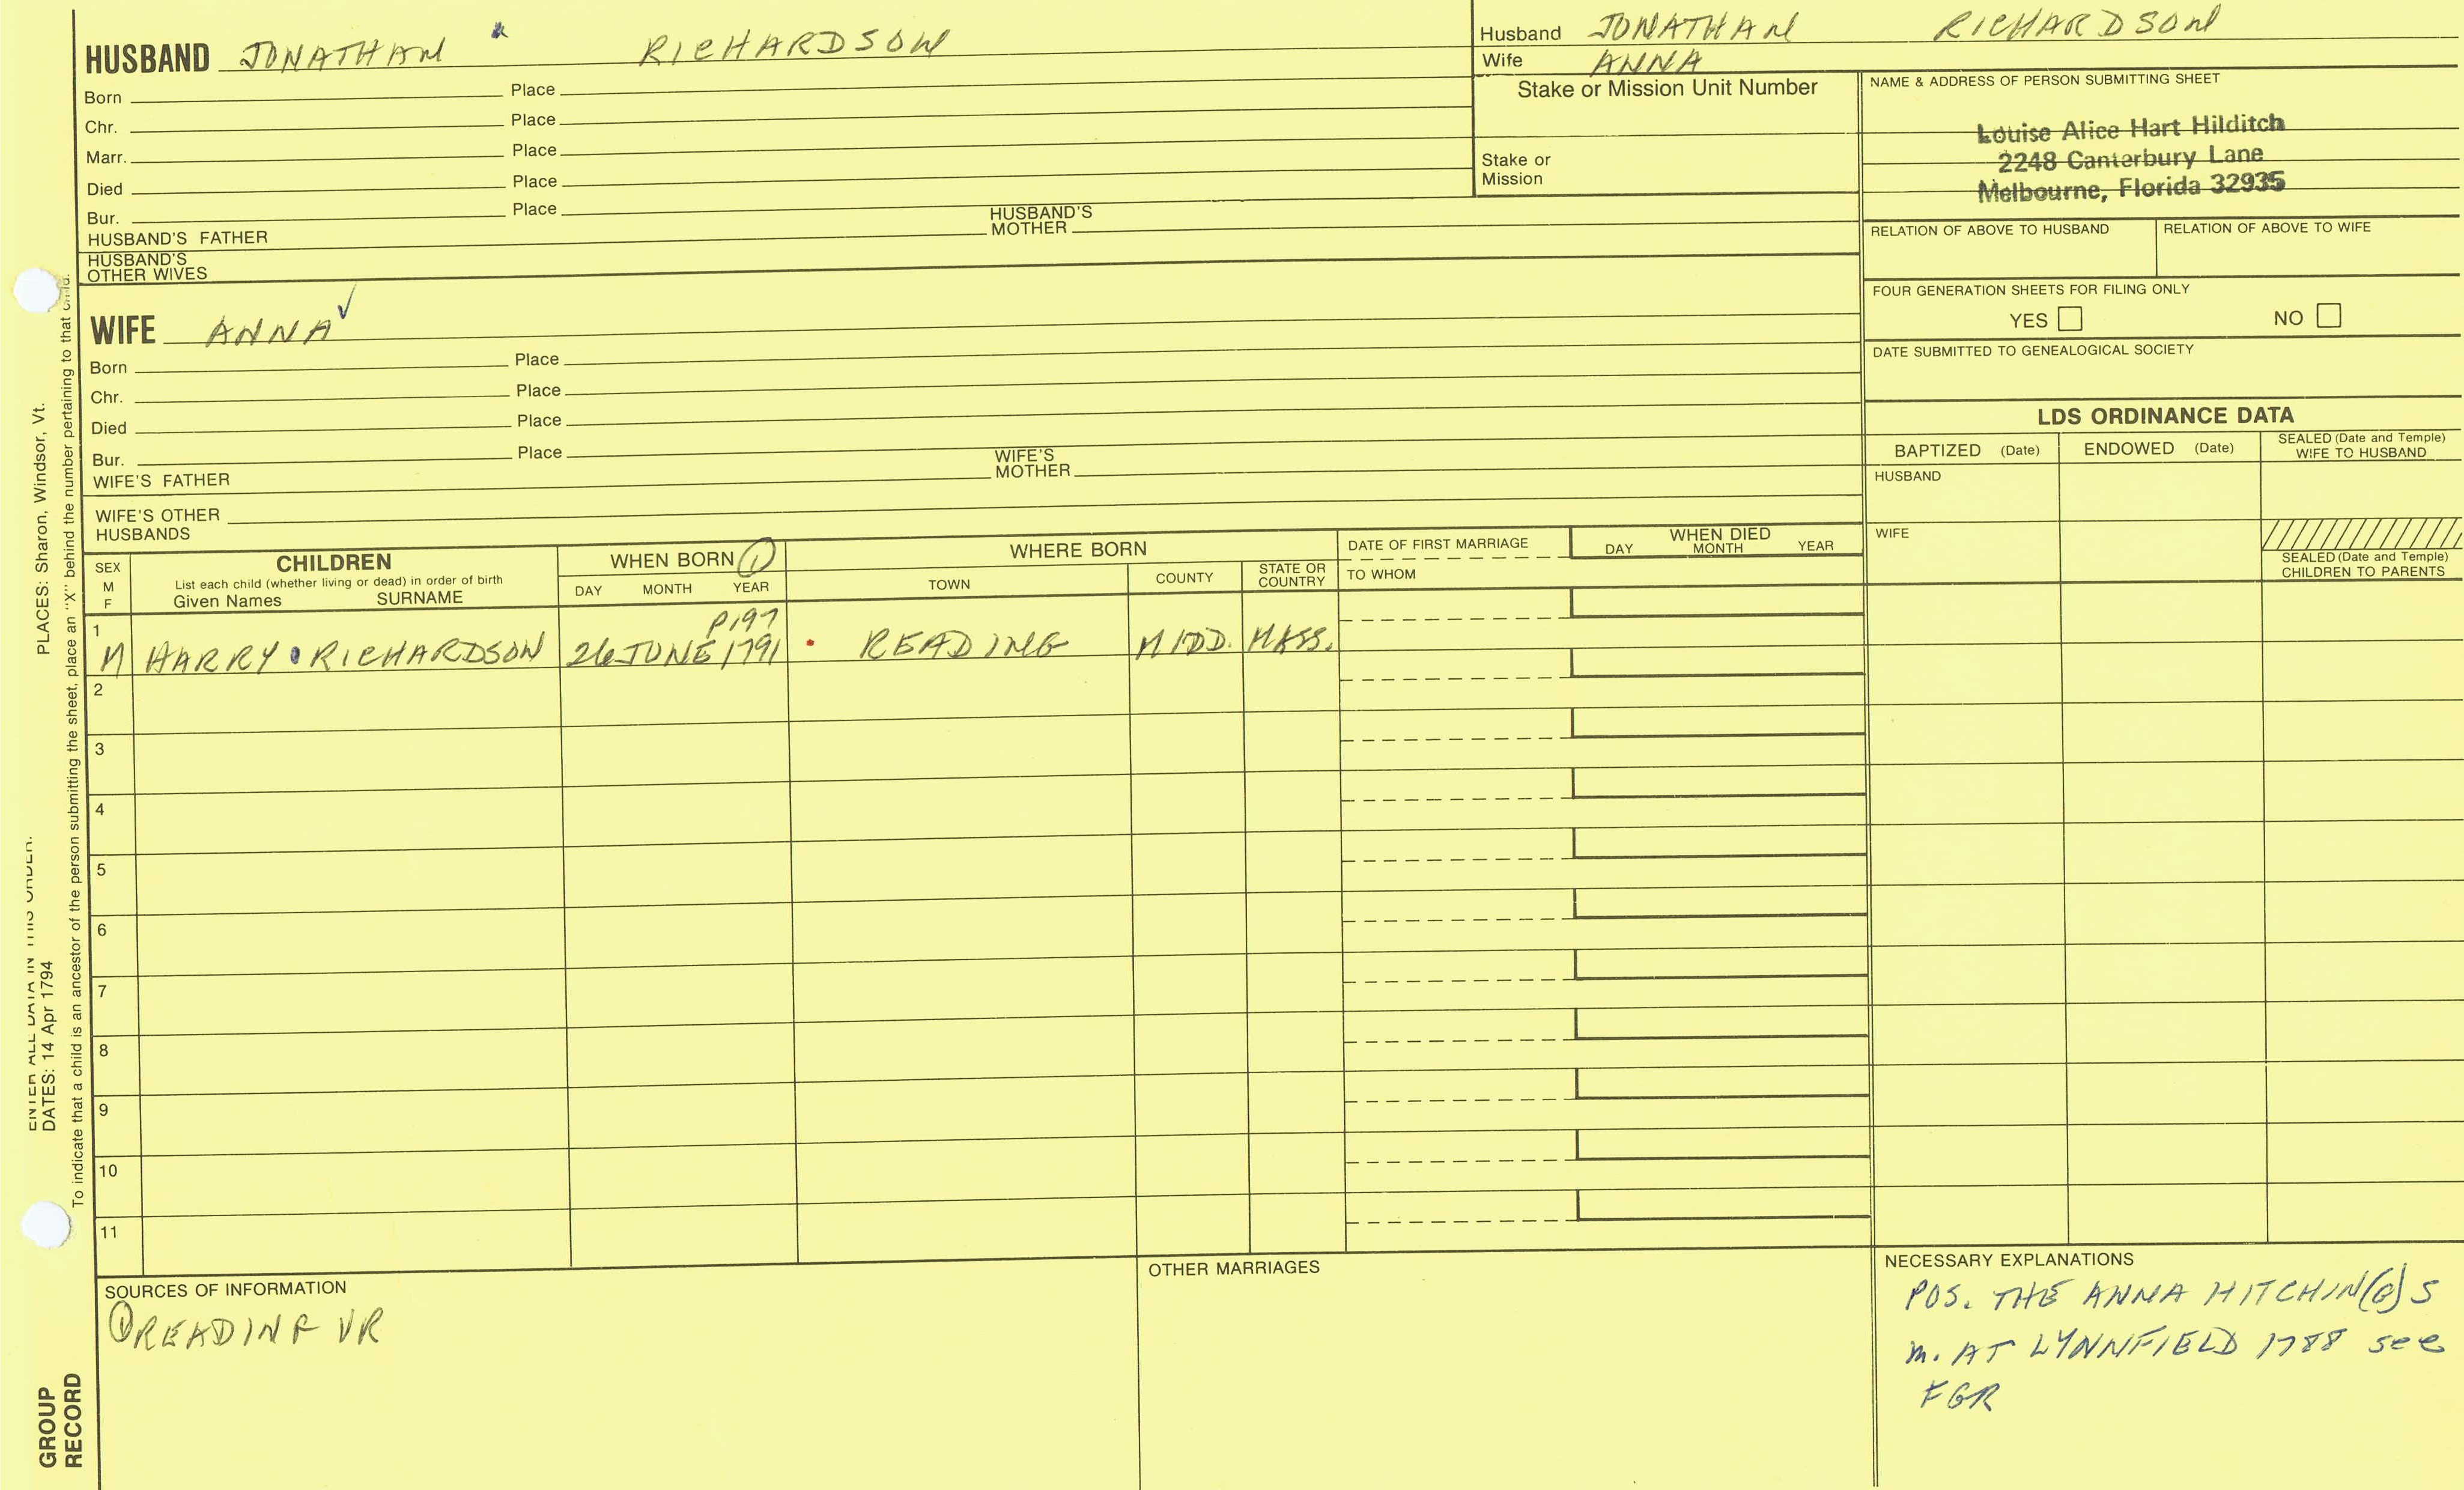 HUSBAND JONATHAN RICHARDSON
Born Place
Chr. Place
Marr. Place
Died Place
Bur. Place
HUSBAND'S FATHER HUSBAND'S MOTHER
HUSBAND'S OTHER WIVES
Husband JONATHAN RICHARDSON
Wife ANNA
Stake or Mission Unit Number
Stake or Mission
NAME & ADDRESS OF PERSON SUBMITTING SHEET
Louise Alice Hart Hilditch
2248 Canterbury Lane
Melbourne, Florida 32935
RELATION OF ABOVE TO HUSBAND RELATION OF ABOVE TO WIFE
FOUR GENERATION SHEETS FOR FILING ONLY
YES NO
DATE SUBMITTED TO GENEALOGICAL SOCIETY
WIFE ANNA ✓
Born Place
Chr. Place
Died Place
Bur. Place
WIFE'S FATHER WIFE'S MOTHER
WIFE'S OTHER HUSBANDS
LDS ORDINANCE DATA
BAPTIZED (Date) ENDOWED (Date) SEALED (Date and Temple) WIFE TO HUSBAND
HUSBAND
WIFE
SEALED (Date and Temple) CHILDREN TO PARENTS
SEX M F
CHILDREN
List each child (whether living or dead) in order of birth
Given Names SURNAME
WHEN BORN ①
DAY MONTH YEAR
WHERE BORN
TOWN COUNTY STATE OR COUNTRY
DATE OF FIRST MARRIAGE
TO WHOM
WHEN DIED
DAY MONTH YEAR
P197
1 M HARRY RICHARDSON 26 JUNE 1791 READING MIDD. MASS.
2
3
4
5
6
7
8
9
10
11
SOURCES OF INFORMATION
① READINF VR
OTHER MARRIAGES
NECESSARY EXPLANATIONS
POS. THE ANNA HITCHIN(G)S
m. AT LYNNFIELD 1788 see
FGR
ENTER ALL DATA IN THIS ORDER:
DATES: 14 Apr 1794 PLACES: Sharon, Windsor, Vt.
To indicate that a child is an ancestor of the person submitting the sheet, place an "X" behind the number pertaining to that child.
GROUP
RECORD